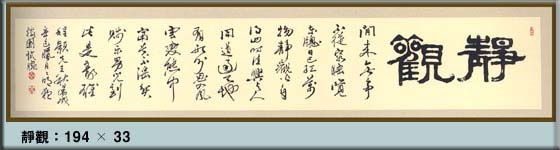 靜觀
閒來無事
不從容睡覺
東窗日已紅萬
物靜觀皆自
得四時佳興與人
同道通天地
有形外思入風
雲變態中
富貴不淫貧
賤樂男兒到
此是豪雄
程顥先生秋日偶成
靜觀：194 × 33